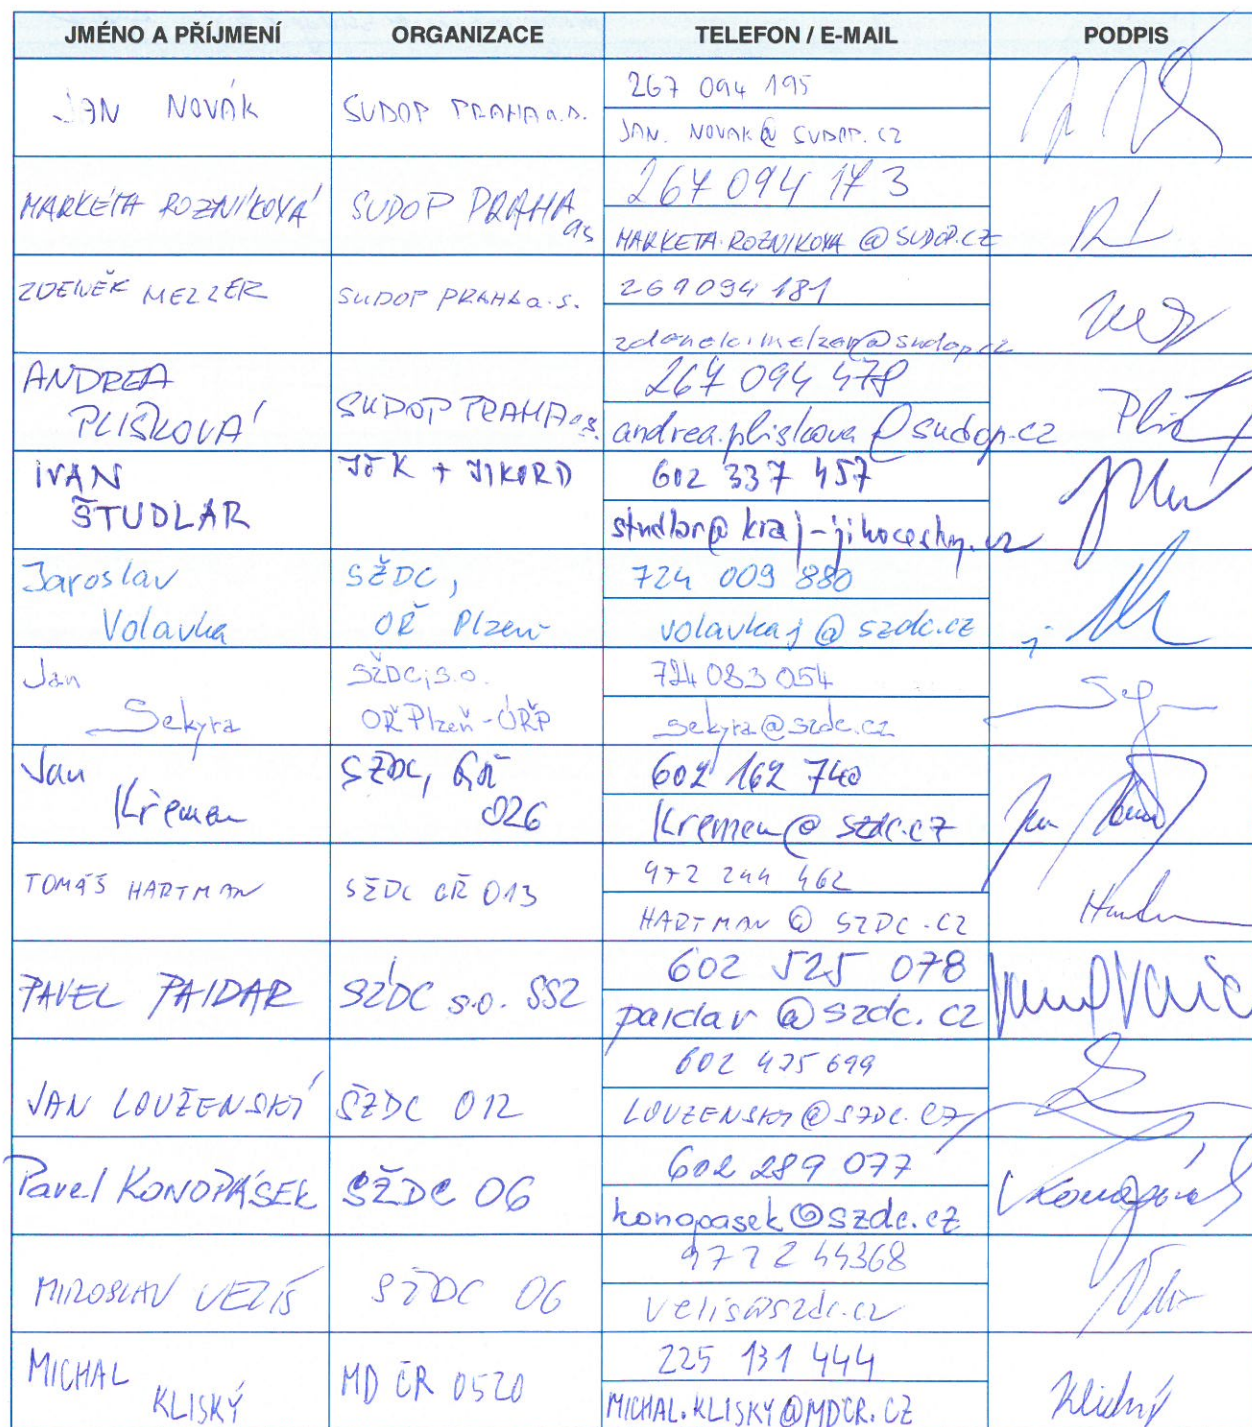 JMÉNO A PŘÍJMENÍ ORGANIZACE TELEFON / E-MAIL PODPIS
JAN NOVÁK SUDOP PRAHA a.s. 267 094 195
JAN.NOVAK@SUDOP.CZ
MARKÉTA ROZNÍKOVÁ SUDOP PRAHA as 267 094 173
MARKETA.ROZNIKOVA@SUDOP.CZ
ZDENĚK MELZER SUDOP PRAHA a.s. 267094181
zdenek.melzer@sudop.cz
ANDREA PLIŠKOVÁ SUDOP PRAHA a.s. 267 094 478
andrea.pliskova@sudop.cz
IVAN ŠTUDLAR JčK + JIKORD 602 337 457
studlar@kraj-jihocesky.cz
Jaroslav Volavka SŽDC, OŘ Plzeň 724 009 880
volavkaj@szdc.cz
Jan Sekyra SŽDC, s.o. OŘ Plzeň - ÚŘP 724 083 054
sekyra@szdc.cz
Jan Křemen SŽDC, GŘ 026 602 162 740
Kremen@szdc.cz
TOMÁŠ HARTMAN SŽDC GŘ 013 972 244 462
HARTMAN@SZDC.CZ
PAVEL PAIDAR SŽDC s.o. SSZ 602 525 078
paidar@szdc.cz
JAN LOUŽENSKÝ SŽDC 012 602 425 699
LOUZENSKY@SZDC.CZ
Pavel KONOPÁSEK SŽDC 06 602 289 077
konopasek@szdc.cz
MIROSLAV VELIŠ SŽDC 06 972244368
velis@szdc.cz
MICHAL KLISKÝ MD ČR 0520 225 131 444
MICHAL.KLISKY@MDCR.CZ